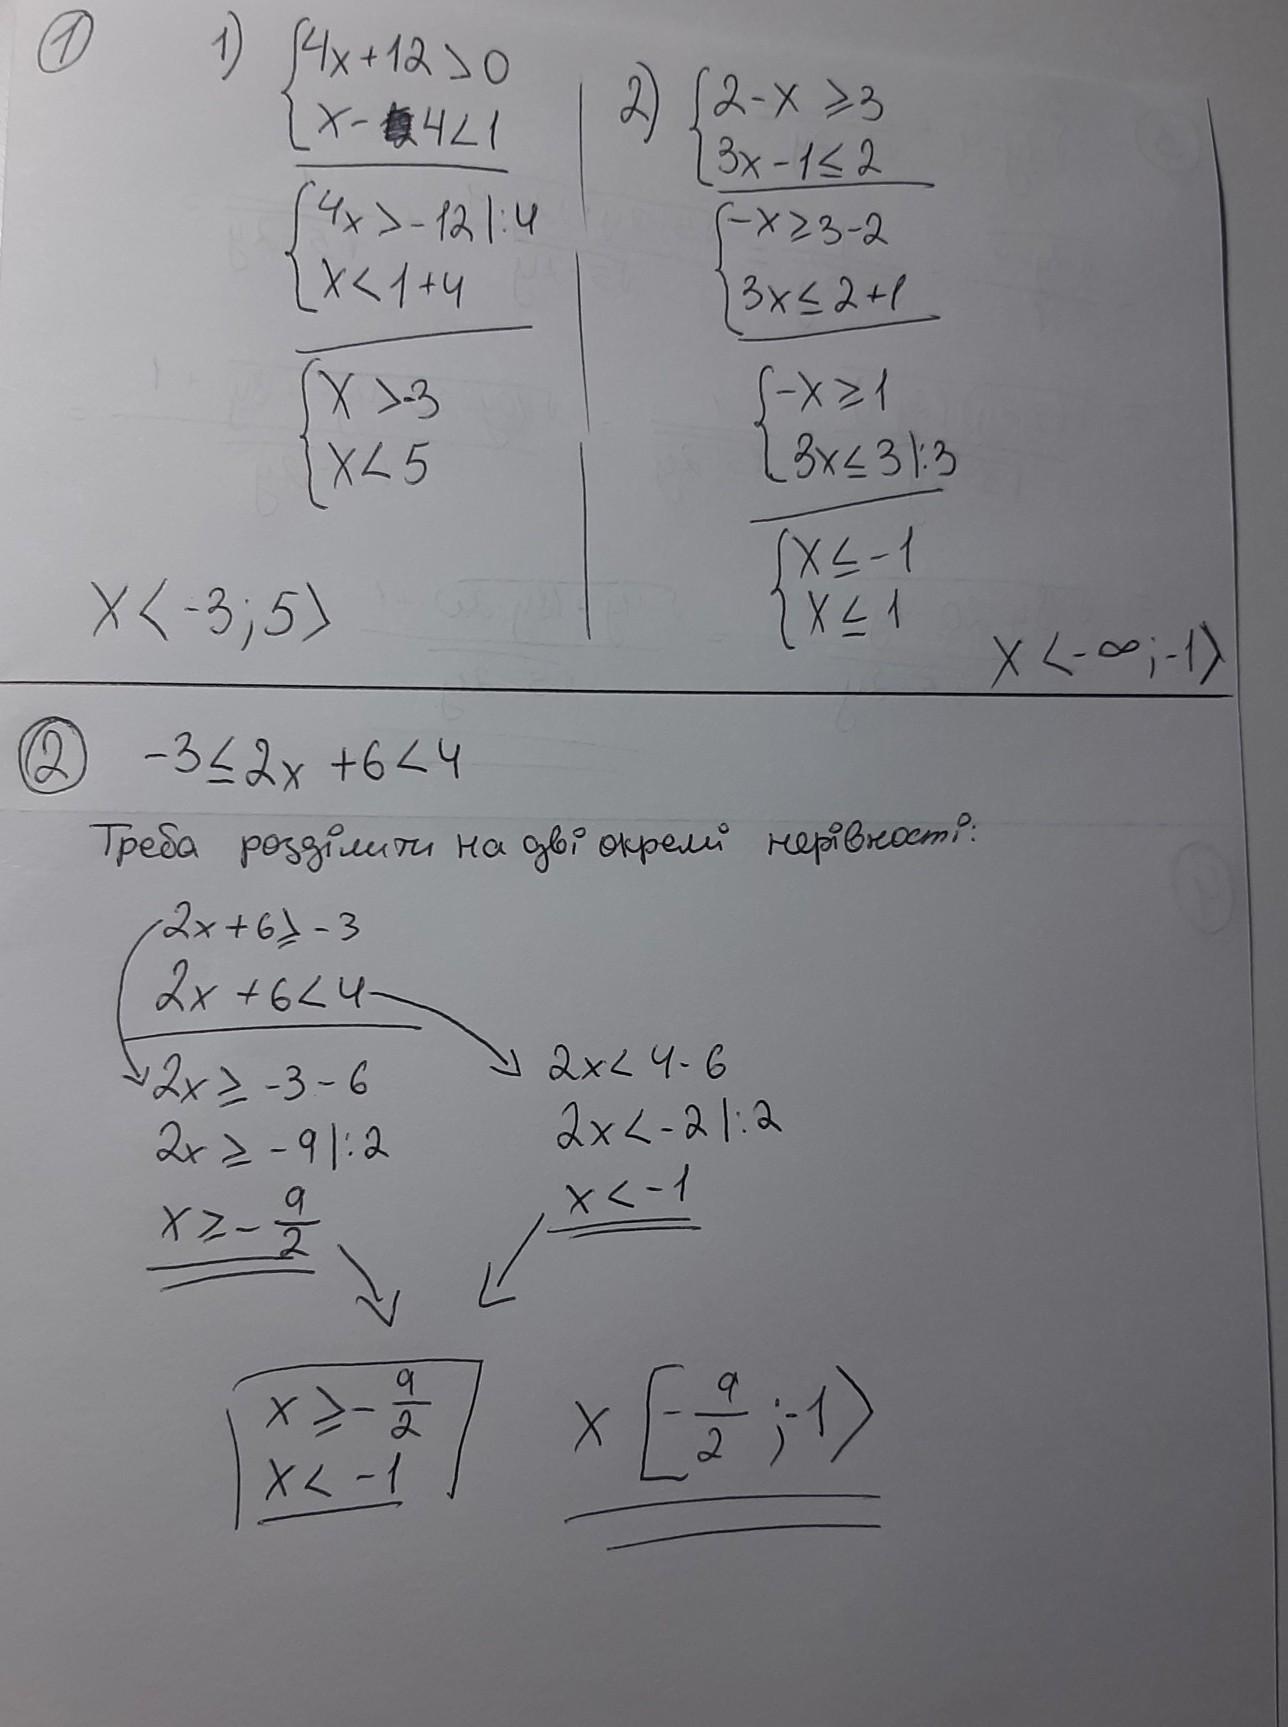 ①
1) {4x+12>0
x-4<1
{4x>-12|:4
x<1+4
{x>-3
x<5
x<-3;5>
2) {2-x≥3
3x-1≤2
{-x≥3-2
3x≤2+1
{-x≥1
3x≤3|:3
{x≤-1
x≤1
x<-∞;-1>
② -3≤2x+6<4
Треба розділити на дві окремі нерівності:
2x+6≥-3
2x+6<4
2x≥-3-6
2x≥-9|:2
x≥-9/2
2x<4-6
2x<-2|:2
x<-1
x≥-9/2
x<-1
x[-9/2;-1>